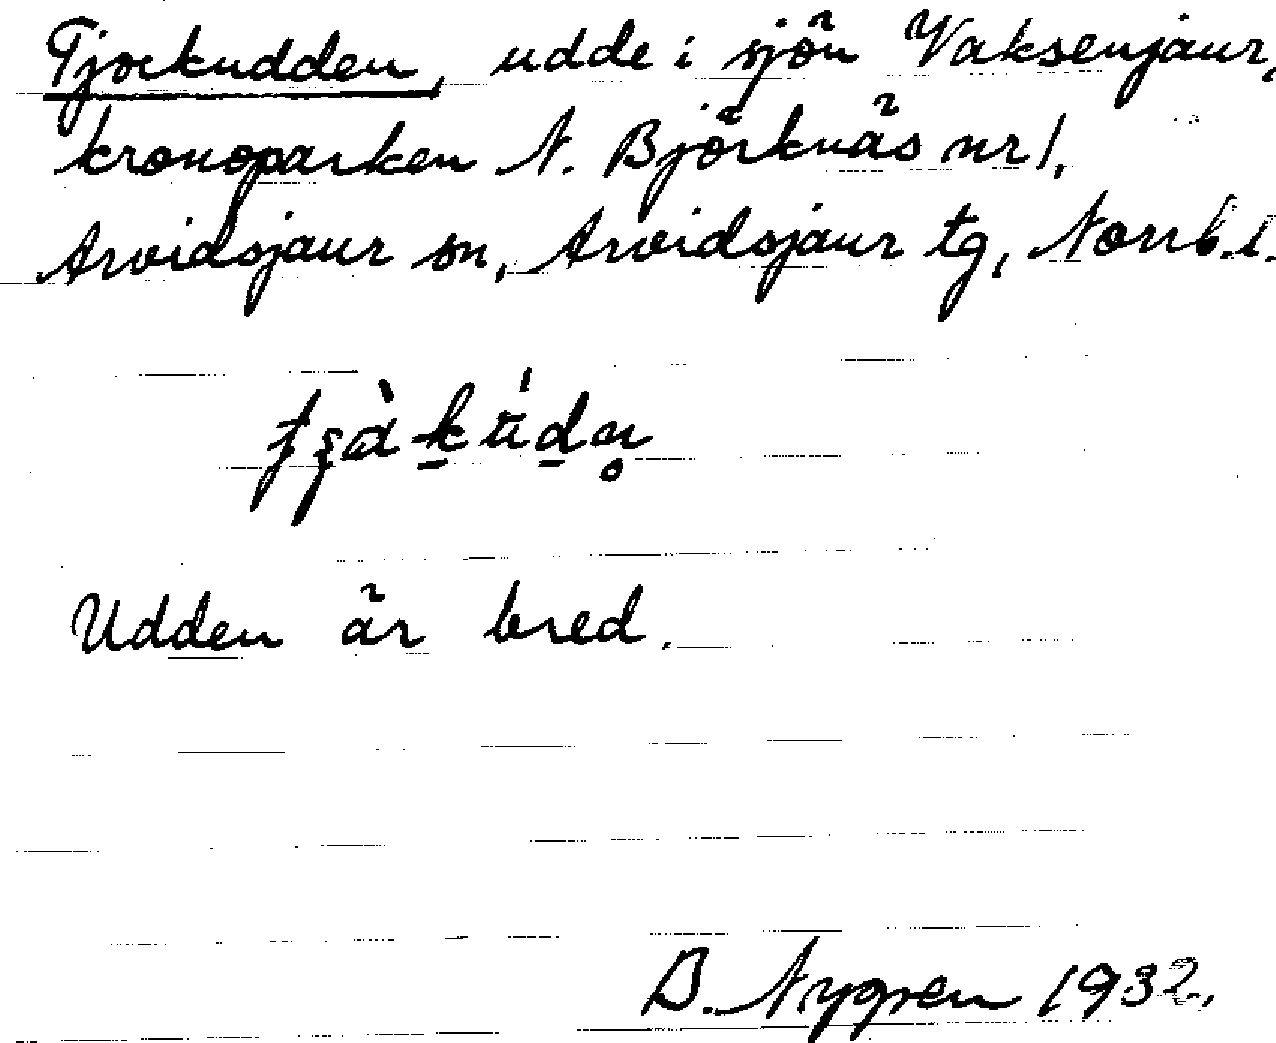 Tjockudden, udde i sjön Vaksenjaur,
kronoparken N. Björknäs nr 1,
Arvidsjaur sn, Arvidsjaur tg, Norrb.l.
Udden är bred.
B. Nygren 1932.